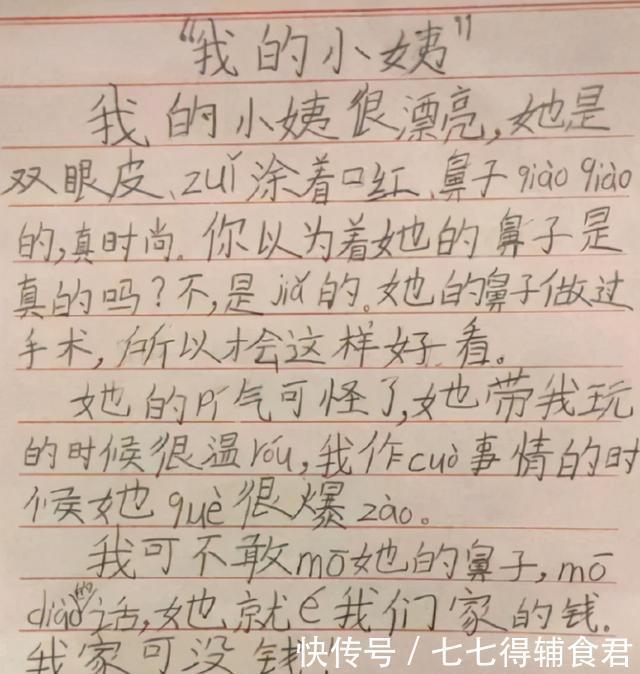 “我的小姨”
我的小姨很漂亮,她是
双眼皮、zuǐ涂着口红、鼻子qiào qiào
的,真时尚。你以为着她的鼻子是
真的吗?不,是jiǎ的。她的鼻子做过
手术,所以才会这样好看。
她的pí气可怪了,她带我玩
的时候很温róu,我作cuò事情的时
候她què很爆zào。
我可不敢mō她的鼻子,mō
diào的话,她就é我们家的钱。
我家可没钱!
快传号/七七得辅食君